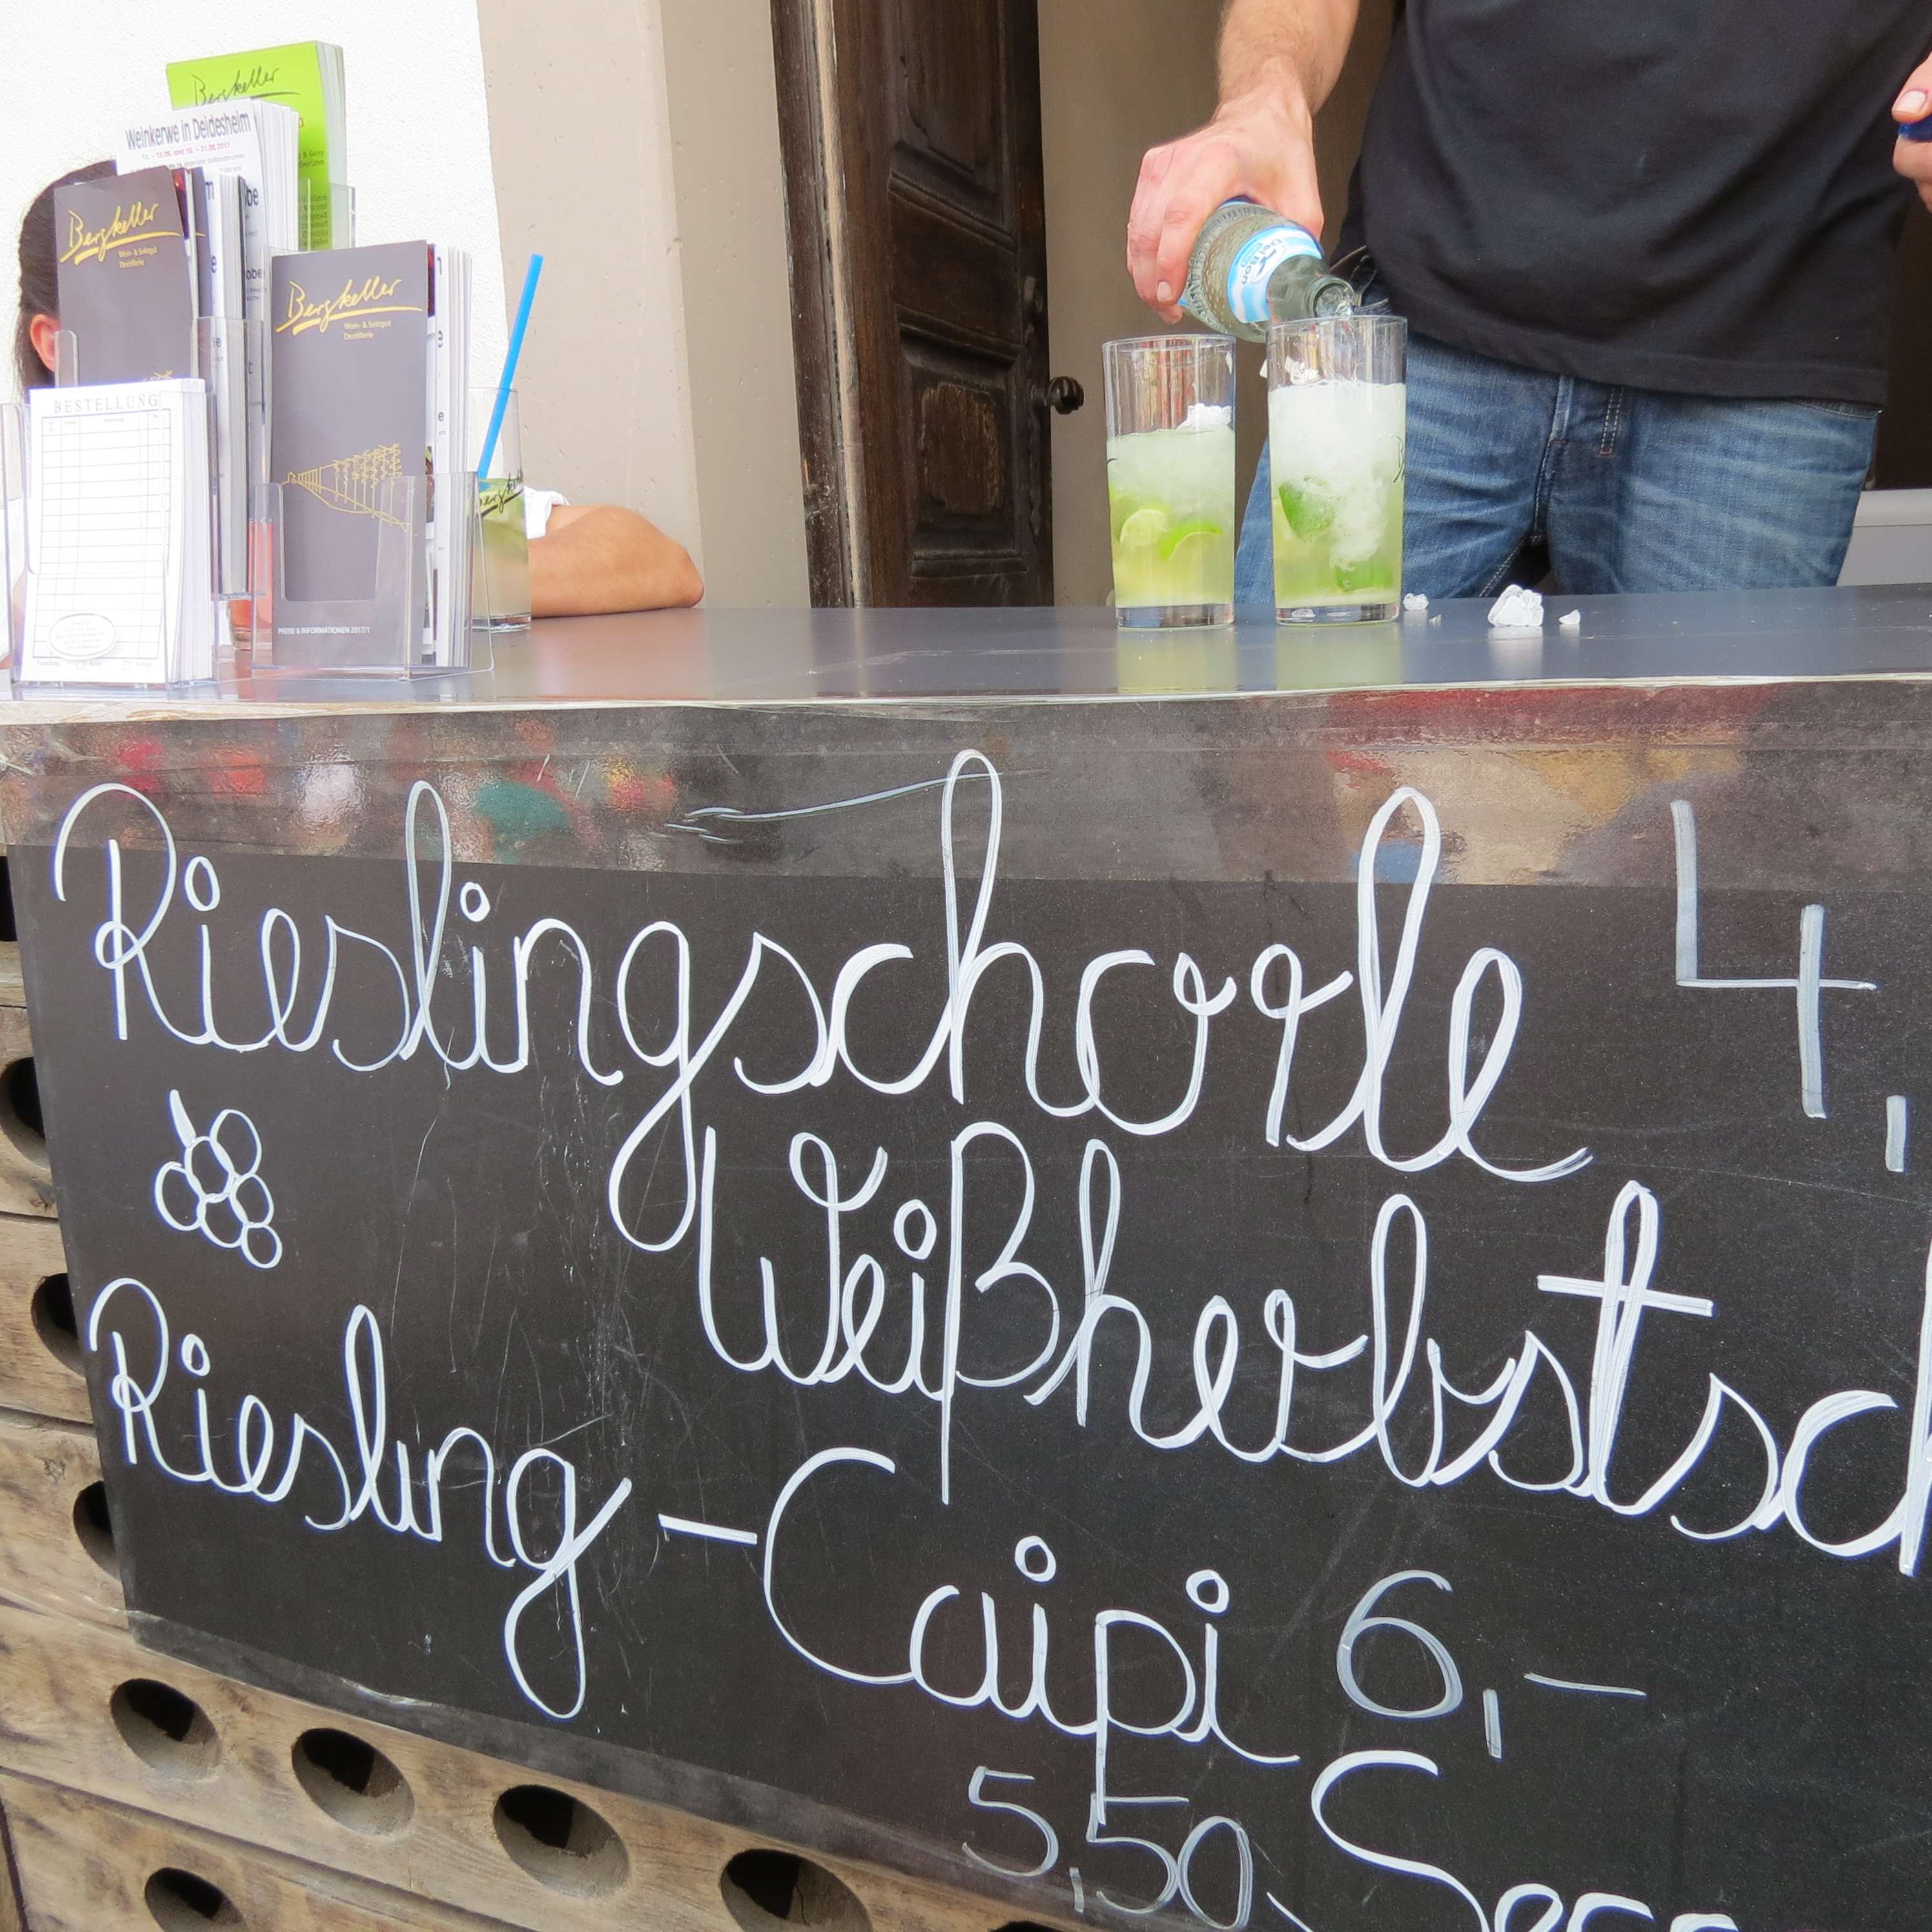 Bergkeller
Weinkerwe in Deidesheim
11. - 15.08. und 18. - 21.08.2017
Bergkeller
Wein- & Sektgut
Destillerie
Bergkeller
Wein- & Sektgut
Destillerie
BESTELLUNG
PREISE & INFORMATIONEN 2017/1
Rieslingschorle 4,
Weißherbstsch
Riesling-Caipi 6,-
5,50 Secc